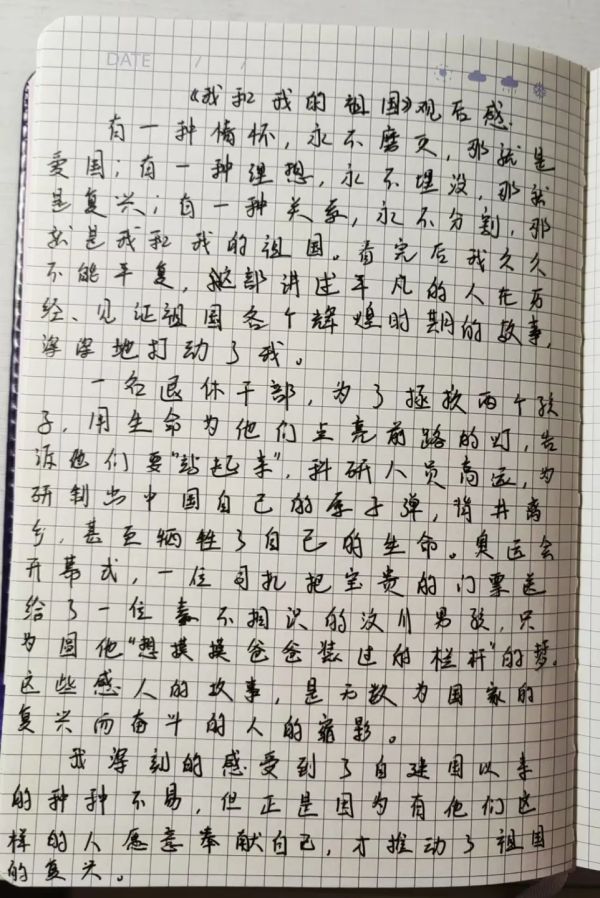 DATE / /
《我和我的祖国》观后感.
有一种情怀，永不磨灭，那就是
爱国；有一种理想，永不埋没，那就
是复兴；有一种关系，永不分割，那
就是我和我的祖国。看完后我久久
不能平复，这部讲述平凡的人在历
经、见证祖国各个辉煌时期的故事，
深深地打动了我。
一名退休干部，为了拯救两个孩
子，用生命为他们点亮前路的灯，告
诉他们要“站起来”，科研人员高远，为
研制出中国自己的原子弹，背井离
乡，甚至牺牲了自己的生命。奥运会
开幕式，一位司机把宝贵的门票送
给了一位素不相识的汶川男孩，只
为圆他“想摸摸爸爸装过的栏杆”的梦。
这些感人的故事，是无数为国家的
复兴而奋斗的人的缩影。
我深刻的感受到了自建国以来
的种种不易，但正是因为有他们这
样的人愿意奉献自己，才推动了祖国
的复兴。